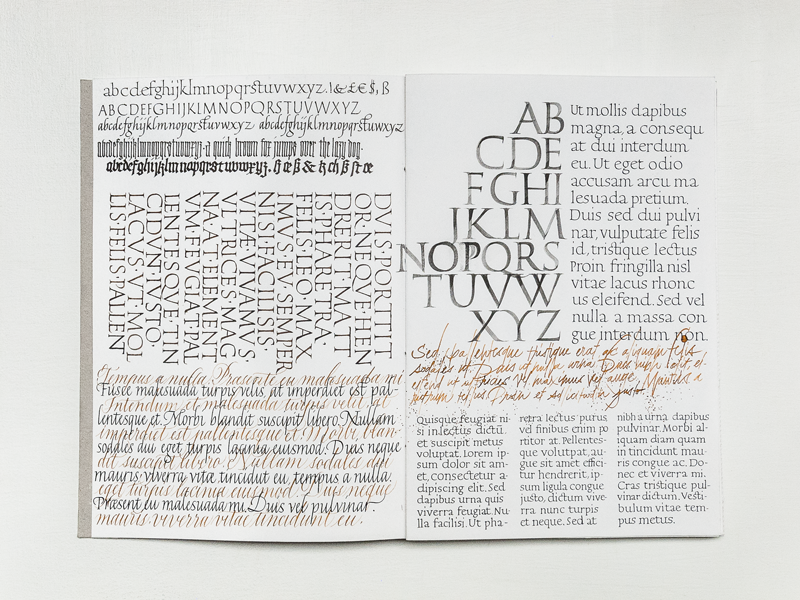 abcdefghijklmnopqrstuvwxyz.!&£€$,ß
ABCDEFGHIJKLMNOPQRSTUVWXYZ
abcdefghijklmnopqrstuvwxyz abcdefghijklmnopqrstuvwxyz
abcdefghijklmnopqrstuvwxyz·a quick brown fox jumps over the lazy dog·
abcdefghijklmnopqrstuvwxyz.
DVIS·PORTTIT
OR·NEQVE·HEN
DRERIT·MATT
IS·PHARETRA·
FELIS·LEO·MAX
IMVS·EV·SEMPER
NISI·FACILISIS
VITÆ·VIVAMVS·
VLTRICES·MAG
NA·A·ELEMENT
VM·FEVGIAT·PAL
IENTESQVE·TIN
CIDVNT·IVSTO·
LACVS·VT·MOL
LIS·FELIS·PALIENT
Tempus a nulla. Præsente eu malesuada mi
Fusce malesuada turpis velis, at imperdiet est pal-
Interdum et malesuada turpis velit at
lentesque et. Morbi blandit suscipit libero. Nullam
imperdiet est pallentesque et. Morbi blan-
sodales dui eget turpis lagania euismod. Duis neque
dit suscipit libero. Nullam sodales dui
mauris viverra vita tincidut eu, tempus a nulla.
eget turpis lacinia euismod. Duis neque
Præsent eu malesuada mi. Duis vel pulvinar.
mauris viverra vitae tincidunt eu.
AB
CDE
FGHI
JKLM
NOPQRS
TUVW
XYZ
Ut mollis dapibus
magna, a consequ
at dui interdum
eu. Ut eget odio
accusam arcu ma
lesuada pretium.
Duis sed dui pulvi
nar, vulputate felis
id, tristique lectus
Proin fringilla nisl
vitae lacus rhonc
us eleifend. Sed vel
nulla a massa con
gue interdum non.
Sed tristique erat aliquam felis
sodales ut Duis urna Duis
ut ultrices vel augue. Mauris a
tellus Proin et justo.
Quisque feugiat ni-
si in lectus dictu.
et suscipit metus
voluptat. Lorem ip-
sum dolor sit am-
et, consectetur a-
dipiscing elit. Sed
dapibus urna quis
viverra feugiat. Nu-
lla facilisi. Ut pha-
retra lectus purus
vel finibus enim po
rtitor at. Pellentes-
que volutpat, au-
gue sit amet effici-
tur hendrerit, ip-
sum ligula congue
justo, dictum vive-
rra nunc turpis
et neque. Sed at
nibh a urna dapibus
pulvinar. Morbi al-
iquam diam quam
in tincidunt mau-
ris congue ac. Do-
nec et viverra mi.
Cras tristique pul-
vinar dictum. Vesti-
bulum vitae tem-
pus metus.